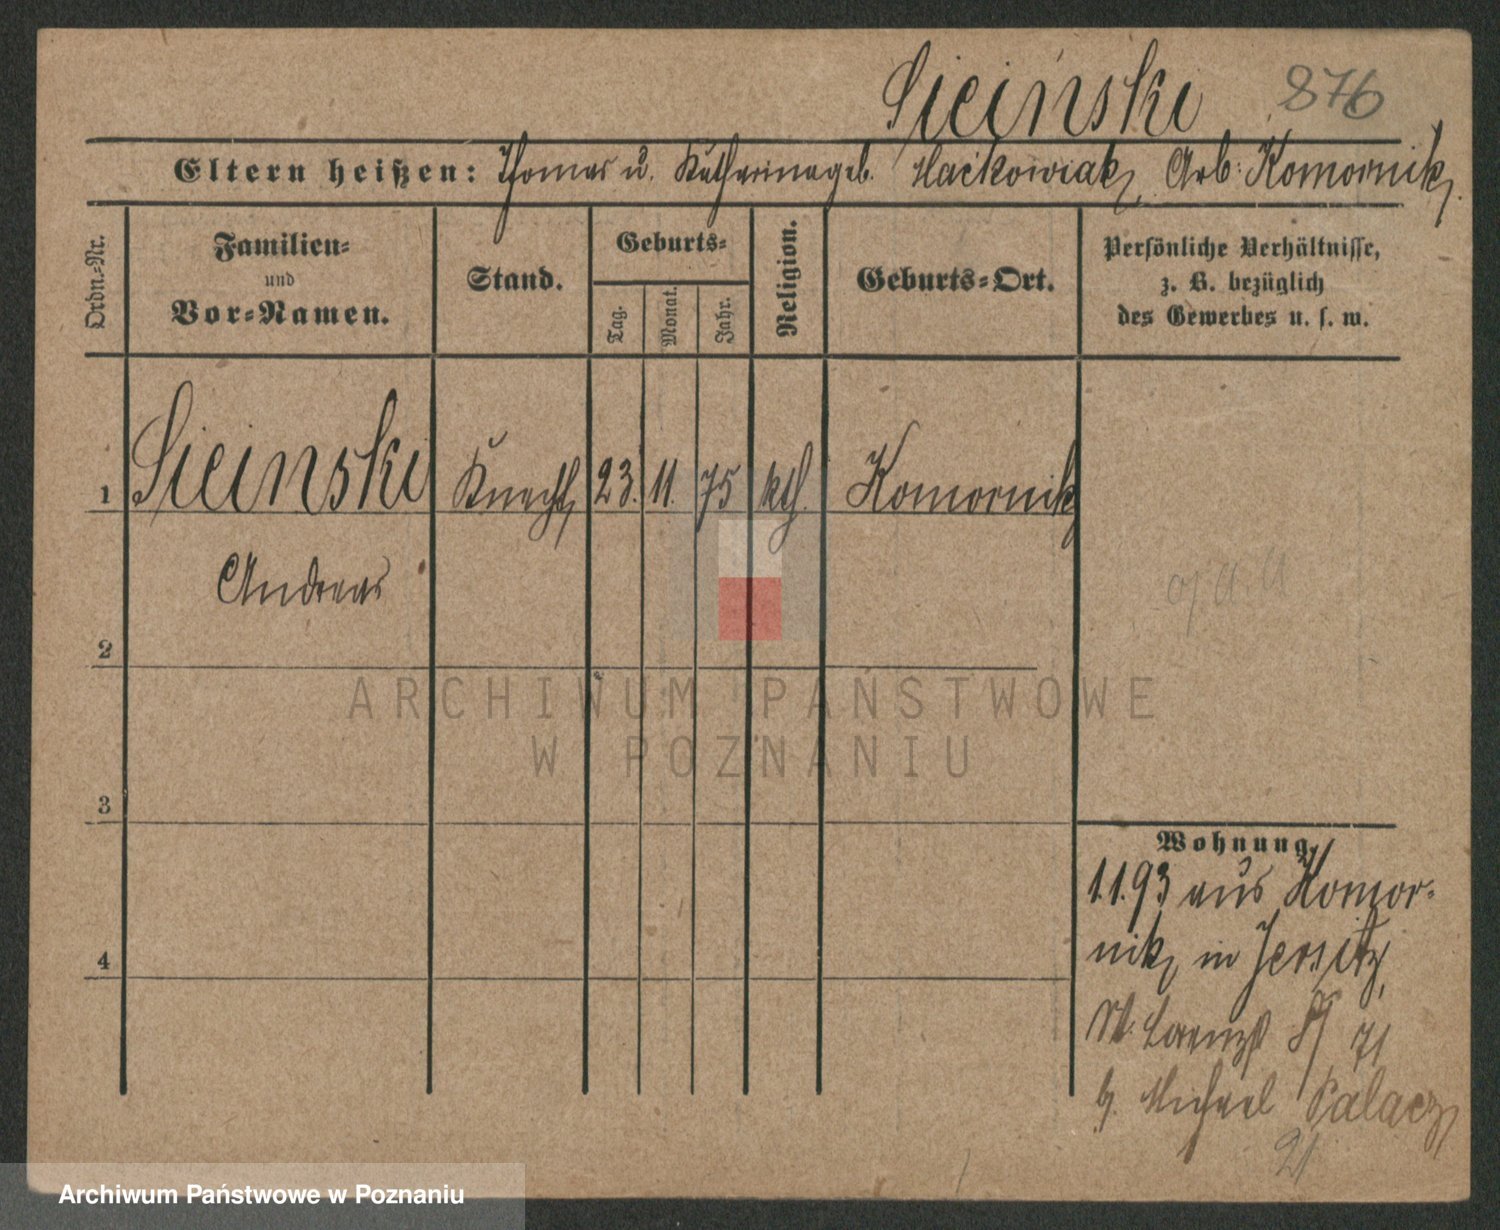 Siciński 876
Eltern heißen: Thomas u. Katharina geb. Maćkowiak, Arb: Komornik,
Ordn.-Nr.
Familien-
und
Vor-Namen.
Stand.
Geburts-
Tag. Monat. Jahr.
Religion.
Geburts-Ort.
Persönliche Verhältnisse,
z. B. bezüglich
des Gewerbes u. s. w.
1 Siciński Knecht 23. 11. 75 kth. Komornik
Andreas
2
3
4
Wohnung
1.1.93 aus Komor-
nik, in Jersitz,
St. Lorenzst 71
b. Michael Palacz
21
ARCHIWUM PAŃSTWOWE
W POZNANIU
Archiwum Państwowe w Poznaniu